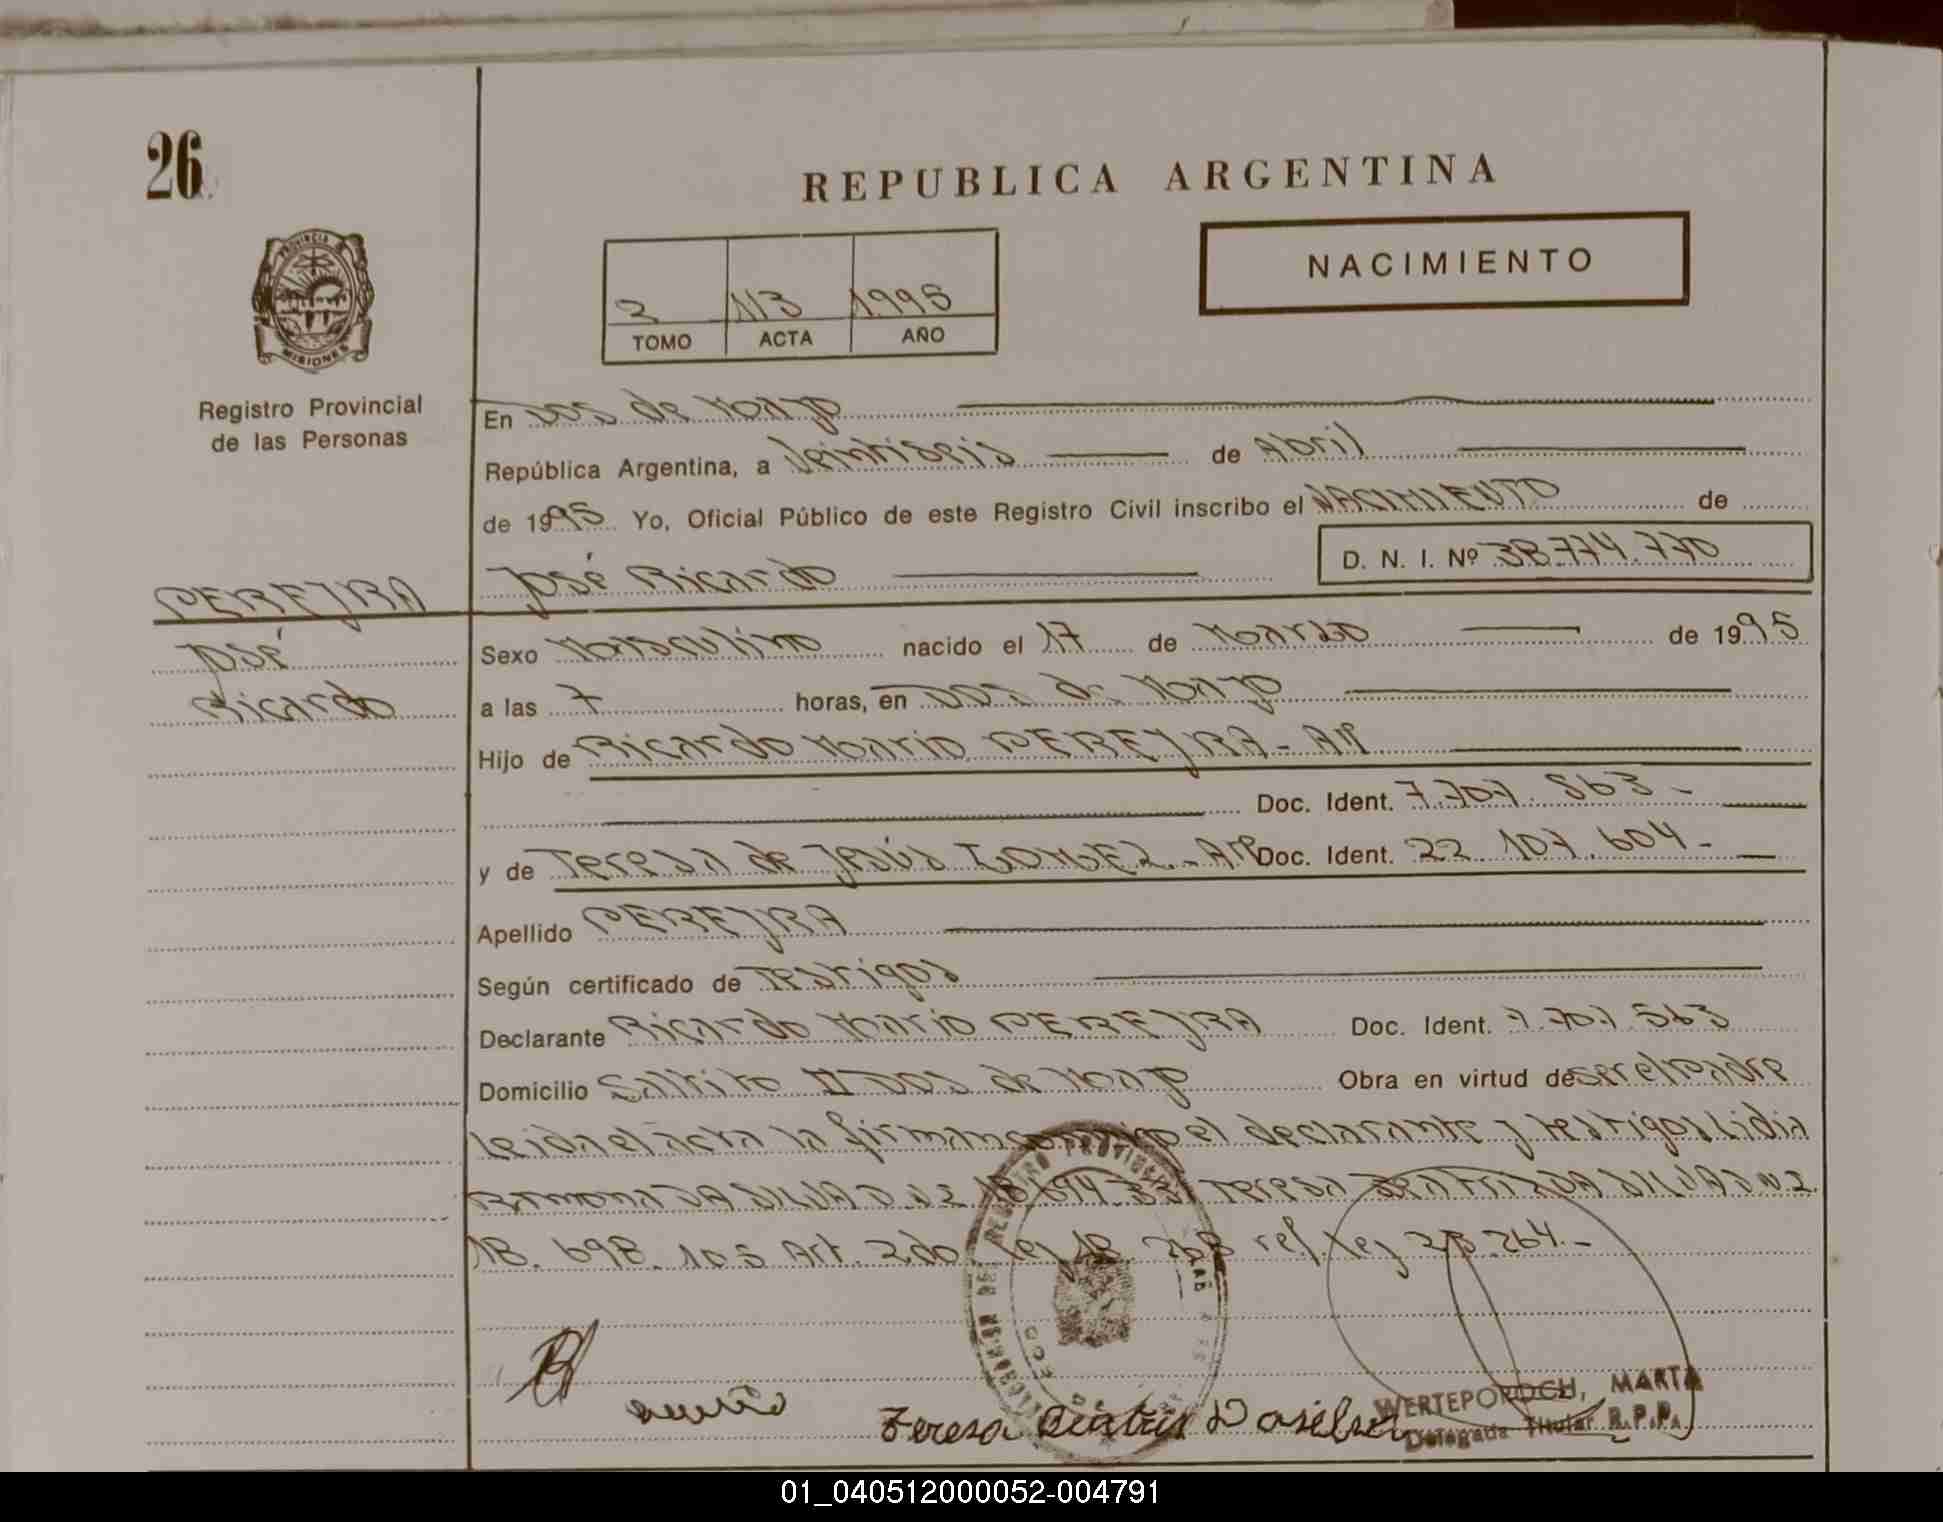 26
REPUBLICA ARGENTINA
NACIMIENTO
PROVINCIA DE
MISIONES
113 1995
TOMO ACTA AÑO
Registro Provincial
de las Personas
En Dos de Mayo
República Argentina, a Veintiseis de Abril
de 1995 Yo, Oficial Público de este Registro Civil inscribo el NACIMIENTO de
José Ricardo D. N. I. Nº 38.774.770
PEREYRA
José
Ricardo
Sexo Masculino nacido el 17 de Marzo de 1995
a las 7 horas, en Dos de Mayo
Hijo de Ricardo Mario PEREYRA - AR
Doc. Ident. 7.707.563 -
y de Teresa de Jesús GOMEZ - AR Doc. Ident. 22.107.604 -
Apellido PEREYRA
Según certificado de Testigos
Declarante Ricardo Mario PEREYRA Doc. Ident. 7.707.563
Domicilio Saltito II Dos de Mayo Obra en virtud de ser el padre
Leida el acta la firman conmigo el declarante y testigos Lidia
Ramona DA SILVA D.N.I. 18.694. Teresa Beatriz DA SILVA D.N.I.
18.698.105 Art. 2do ley 18.248 ref. ley 23.264.-
Teresa Beatris Dasilva
WERTEPOROCH, MARTA
Delegada Titular R.P.P.
01_040512000052-004791